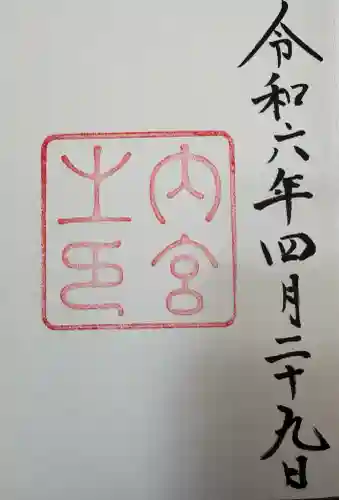 令和六年四月二十九日
内宮
之印